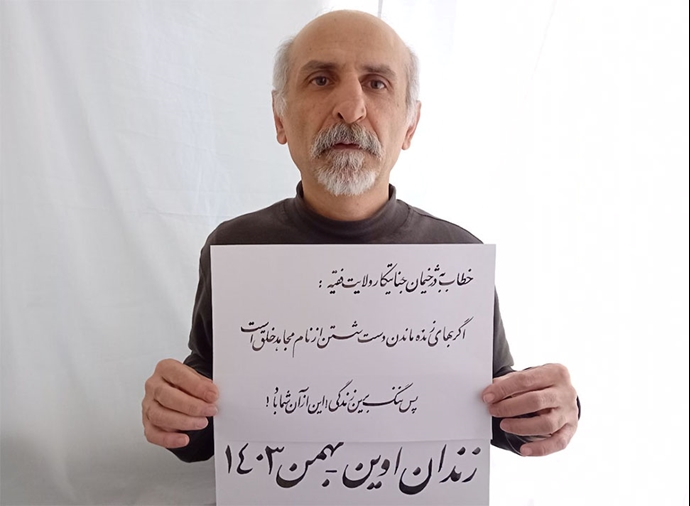 خطاب به دژخیمان جنایتکار ولایت فقیه :
اگر بهای زنده ماندن دست شستن از نام مجاهد خلق است
پس ننگ بر این زندگی! این از آن شما باد!
زندان اوین - بهمن ۱۴۰۳